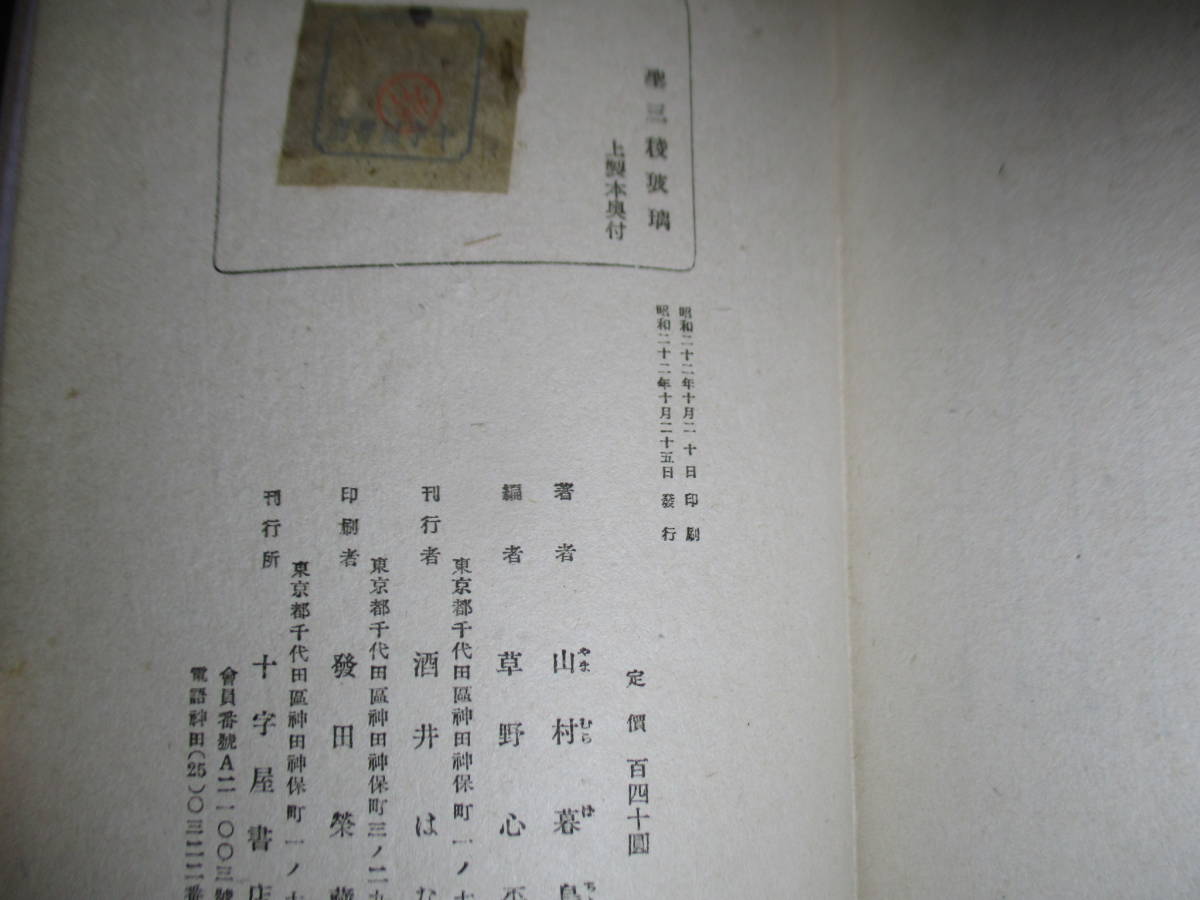 聖三稜玻璃
上製本奥付
昭和二十二年十月二十日 印刷
昭和二十二年十月二十五日 發行
定價 百四十圓
著者 山村暮鳥
やま むら ぼ
編者 草野心平
東京都千代田區神田神保町一ノ十
刊行者 酒井はな
東京都千代田區神田神保町三ノ二九
印刷者 發田榮藏
東京都千代田區神田神保町一ノ十
刊行所 十字屋書店
會員番號A二一〇〇三號
電話神田(25)〇三二二番